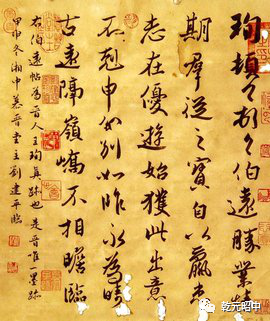 珣頓首頓首伯遠勝業情
期羣從之寶自以羸患
志在優遊始獲此出意
不剋申分別如昨永為疇
古遠隔嶺嶠不相瞻臨
右伯遠帖為晉人王珣真跡也是晉唯一墨跡
甲申冬湘中慕晉堂主劉建平臨
乾元昭中